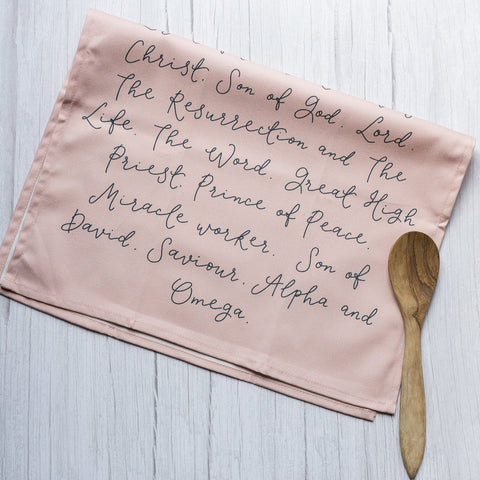 Christ. Son of God. Lord.
The Resurrection and The
Life. The Word. Great High
Priest. Prince of Peace.
Miracle worker. Son of
David. Saviour. Alpha and
Omega.